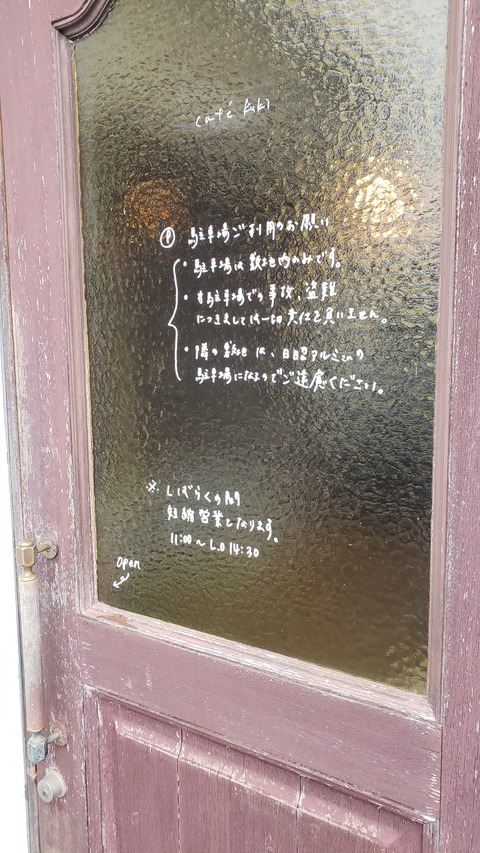 café kuki
! 駐車場ご利用のお願い
・駐車場は敷地内のみです。
・当駐車場での事故、盗難
につきましては一切責任を負いません。
・隣の敷地は、日昭アルミさんの
駐車場になるのでご遠慮ください。
※しばらくの間
短縮営業となります。
11:00 〜 L.O 14:30
open